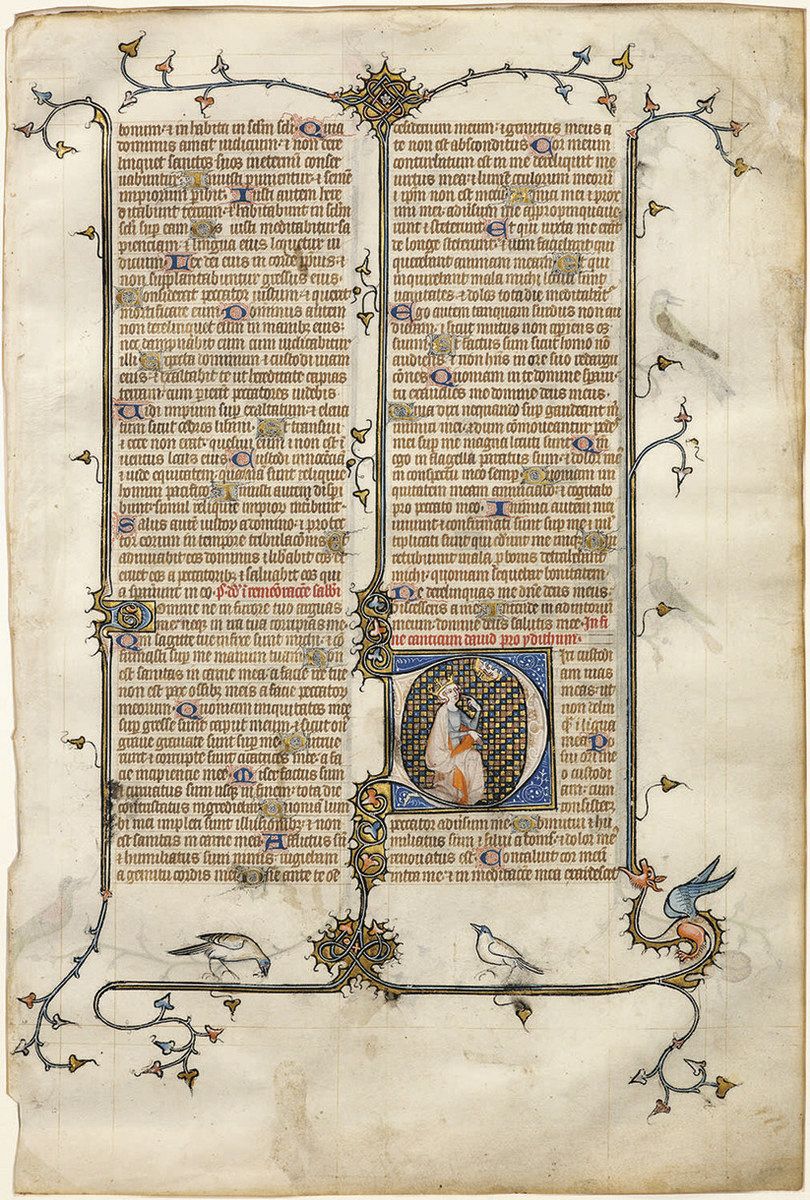 bonum: ⁊ in habita in sclm scli Quia
dominus amat iudicium: ⁊ non dere
linquet sanctos suos in eternum conser
uabuntur Iniusti punientur: ⁊ semē
impiorum pibit. Iusti autem here
ditabunt terram: ⁊ habitabunt in sclm
scli sup eam Os iusti meditabitur sa
pienciam: ⁊ lingua eius loquetur iu
dicium Lex dei eius in corde ipius: ⁊
non supplantabuntur gressus eius.
Considerat peccator iustum: ⁊ querit
mortificare eum Dominus autem
non derelinquet eum in manibȝ eius:
nec dampnabit eum cum iudicabitur
illi Expecta dominum ⁊ custodi uiam
eius: ⁊ exaltabit te ut hereditate capias
terram: cum perierit peccatores uidebis
Uidi impium sup exaltatum: ⁊ eleua
tum sicut cedros libani Et transiui
⁊ ecce non erat: quesiui eum ⁊ non est ī
uentus locus eius Custodi innocenciā
⁊ uide equitatem: quoniam sunt reliquie
homini pacifico Iniusti autem dispi
bunt: simul reliquie impior̄ intibunt.
Salus autē iustor̄ a domino: ⁊ protec
tor eorum in tempore tribulacōnis Et
adiuuabit eos dominus ⁊ libabit eos ⁊
eruet eos a peccatoribȝ ⁊ saluabit eos qui
a sperauerunt in eo
Domine ne in furore tuo arguas
me: neqȝ in ira tua corripias me
Qm̄ sagitte tue infixe sunt michi: ⁊ cō
firmasti sup me manum tuam Non
est sanitas in carne mea a facie ire tue
non est pax ossibȝ meis a facie peccator̄
meorum Quoniam iniquitates mee
sup gresse sunt caput meum: ⁊ sicut on̄
graue grauate sunt sup me Putrue
runt ⁊ corrupte sunt cicatrices mee: a fa
cie insipiencie mee Miser factus sum
⁊ curuatus sum usqȝ in finem: tota die
contristatus ingrediebar Quoniam lum
bi mei impleti sunt illusionibȝ: ⁊ non
est sanitas in carne mea Afflictus sū
⁊ humiliatus sum nimis: rugiebam
a gemitu cordis mei Dn̄e ante te oē
desiderium meum: ⁊ gemitus meus a
te non est absconditus Cor meum
conturbatum est in me dereliquit me
uirtus mea: ⁊ lumē oculorum meorū
⁊ ipm̄ non est mecū Amici mei ⁊ prox
imi mei: aduersum me appropinquaue
runt ⁊ steterunt Et qui iuxta me erāt
de longe steterunt: ⁊ uim faciebant qui
querebant animam meam Et qui
inquirebant mala michi locuti sunt
uanitates: ⁊ dolos tota die meditabāt̄
Ego autem tanquam surdus non au
diebam: ⁊ sicut mutus non apiens os
suum Et factus sum sicut homo nō
audiens: ⁊ non hn̄s in ore suo redargu
cōnes Quoniam in te domine speraui:
tu exaudies me domine deus meus.
Quia dixi nequando sup gaudeant in̄
inimici mei: ⁊ dum cōmoueantur pedes
mei sup me magna locuti sunt Qm̄
ego in flagella paratus sum: ⁊ dolor ms̄
in conspectu meo semp Quoniam ini
quitatem meam annunciabo: ⁊ cogitabo
pro peccato meo Inimici autem mei
uiuunt ⁊ confirmati sunt sup me: mul
tiplicati sunt qui oderunt me iniqȝ Qui
retribuunt mala p bonis detrahebāt
michi: quoniam sequebar bonitatem
Ne derelinquas me dn̄e deus meus:
ne discesseris a me Intende in adiutoriū
meum: domine deus salutis mee In fi
nem canticum dauid pro ydithun.
Dixi custodi
am uias
meas: ut
non delin
quā ī lingua
mea Po
sui ori meo
custodi
am: cum
consisteret
peccator aduersum me Obmutui ⁊ hu
miliatus sum ⁊ silui a bonis: ⁊ dolor ms̄
renouatus est Concaluit cor meum
intra me: ⁊ in meditacōe mea exardescet